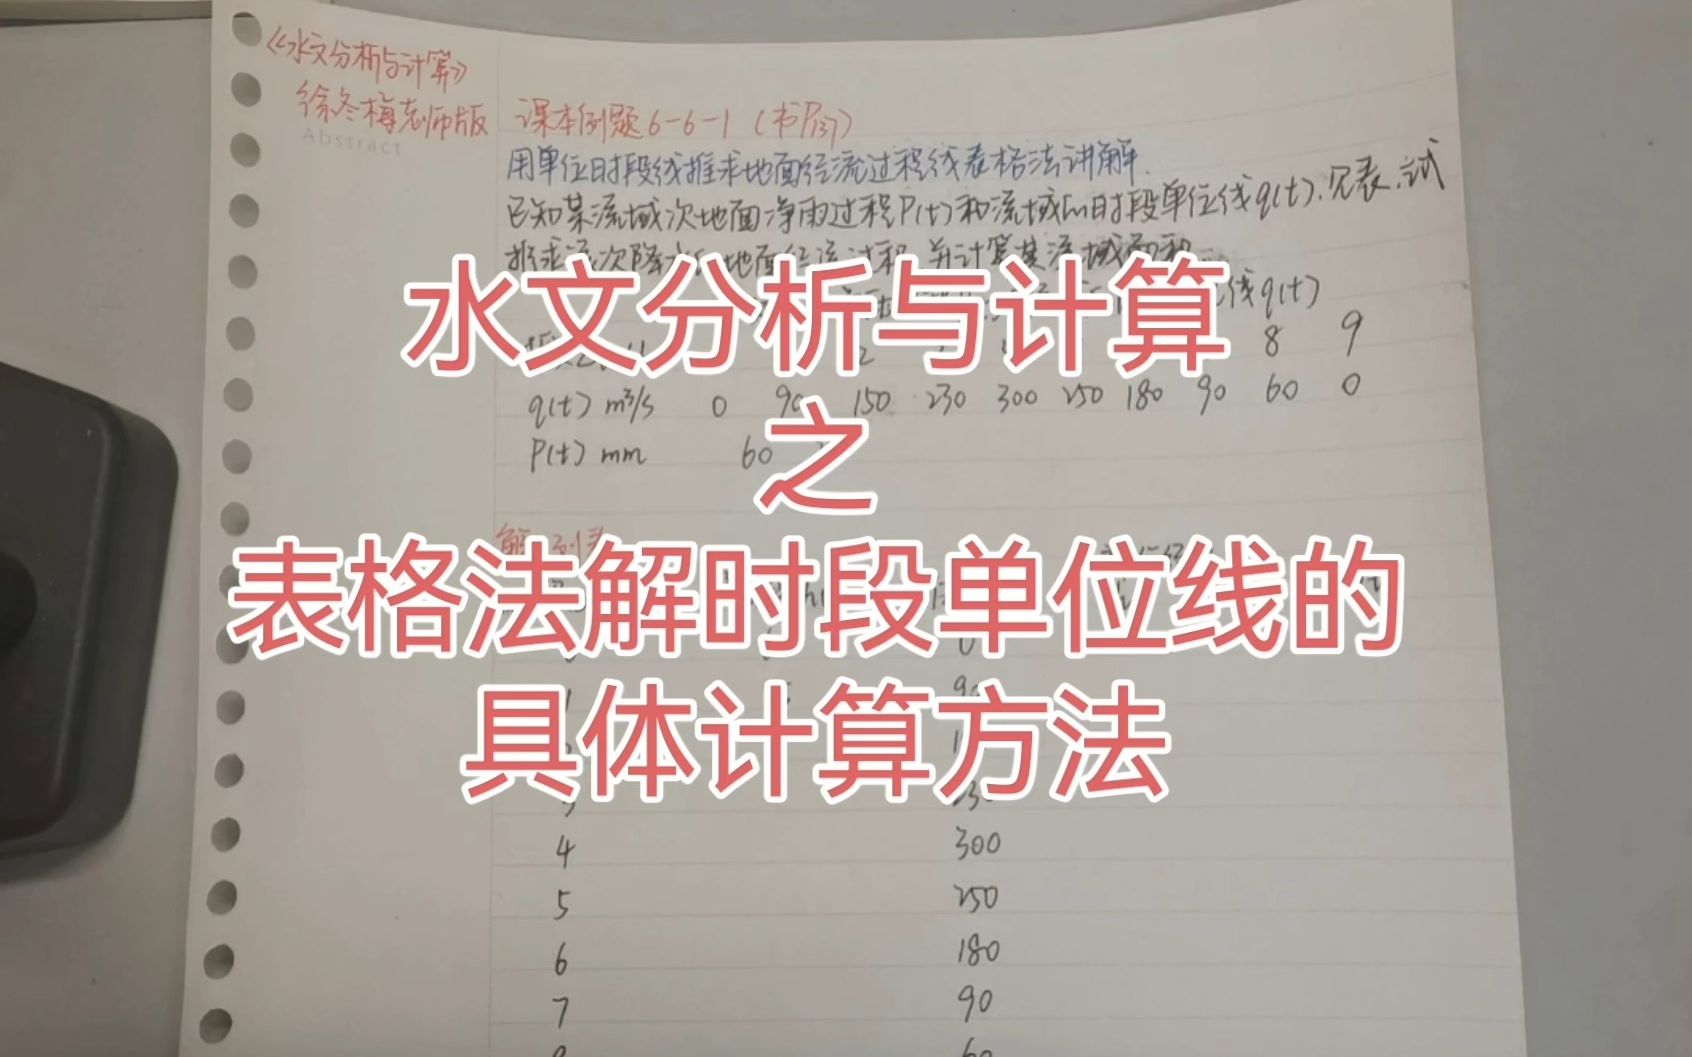 《水文分析与计算》
徐冬梅老师版
Abstract
课本例题6-6-1（书P137）
用单位时段线推求地面径流过程线表格法讲解.
已知某流域次地面净雨过程P(t)和流域1h时段单位线q(t).见表.试
推求 次降 地面径流过程 并计算某流域面积
线q(t)
2 8 9
q(t) m³/s 0 90 150 230 300 250 180 90 60 0
P(t) mm 60
水文分析与计算
之
表格法解时段单位线的
具体计算方法
解 列表
0 0
1 90
3 230
4 300
5 250
6 180
7 90
8 60